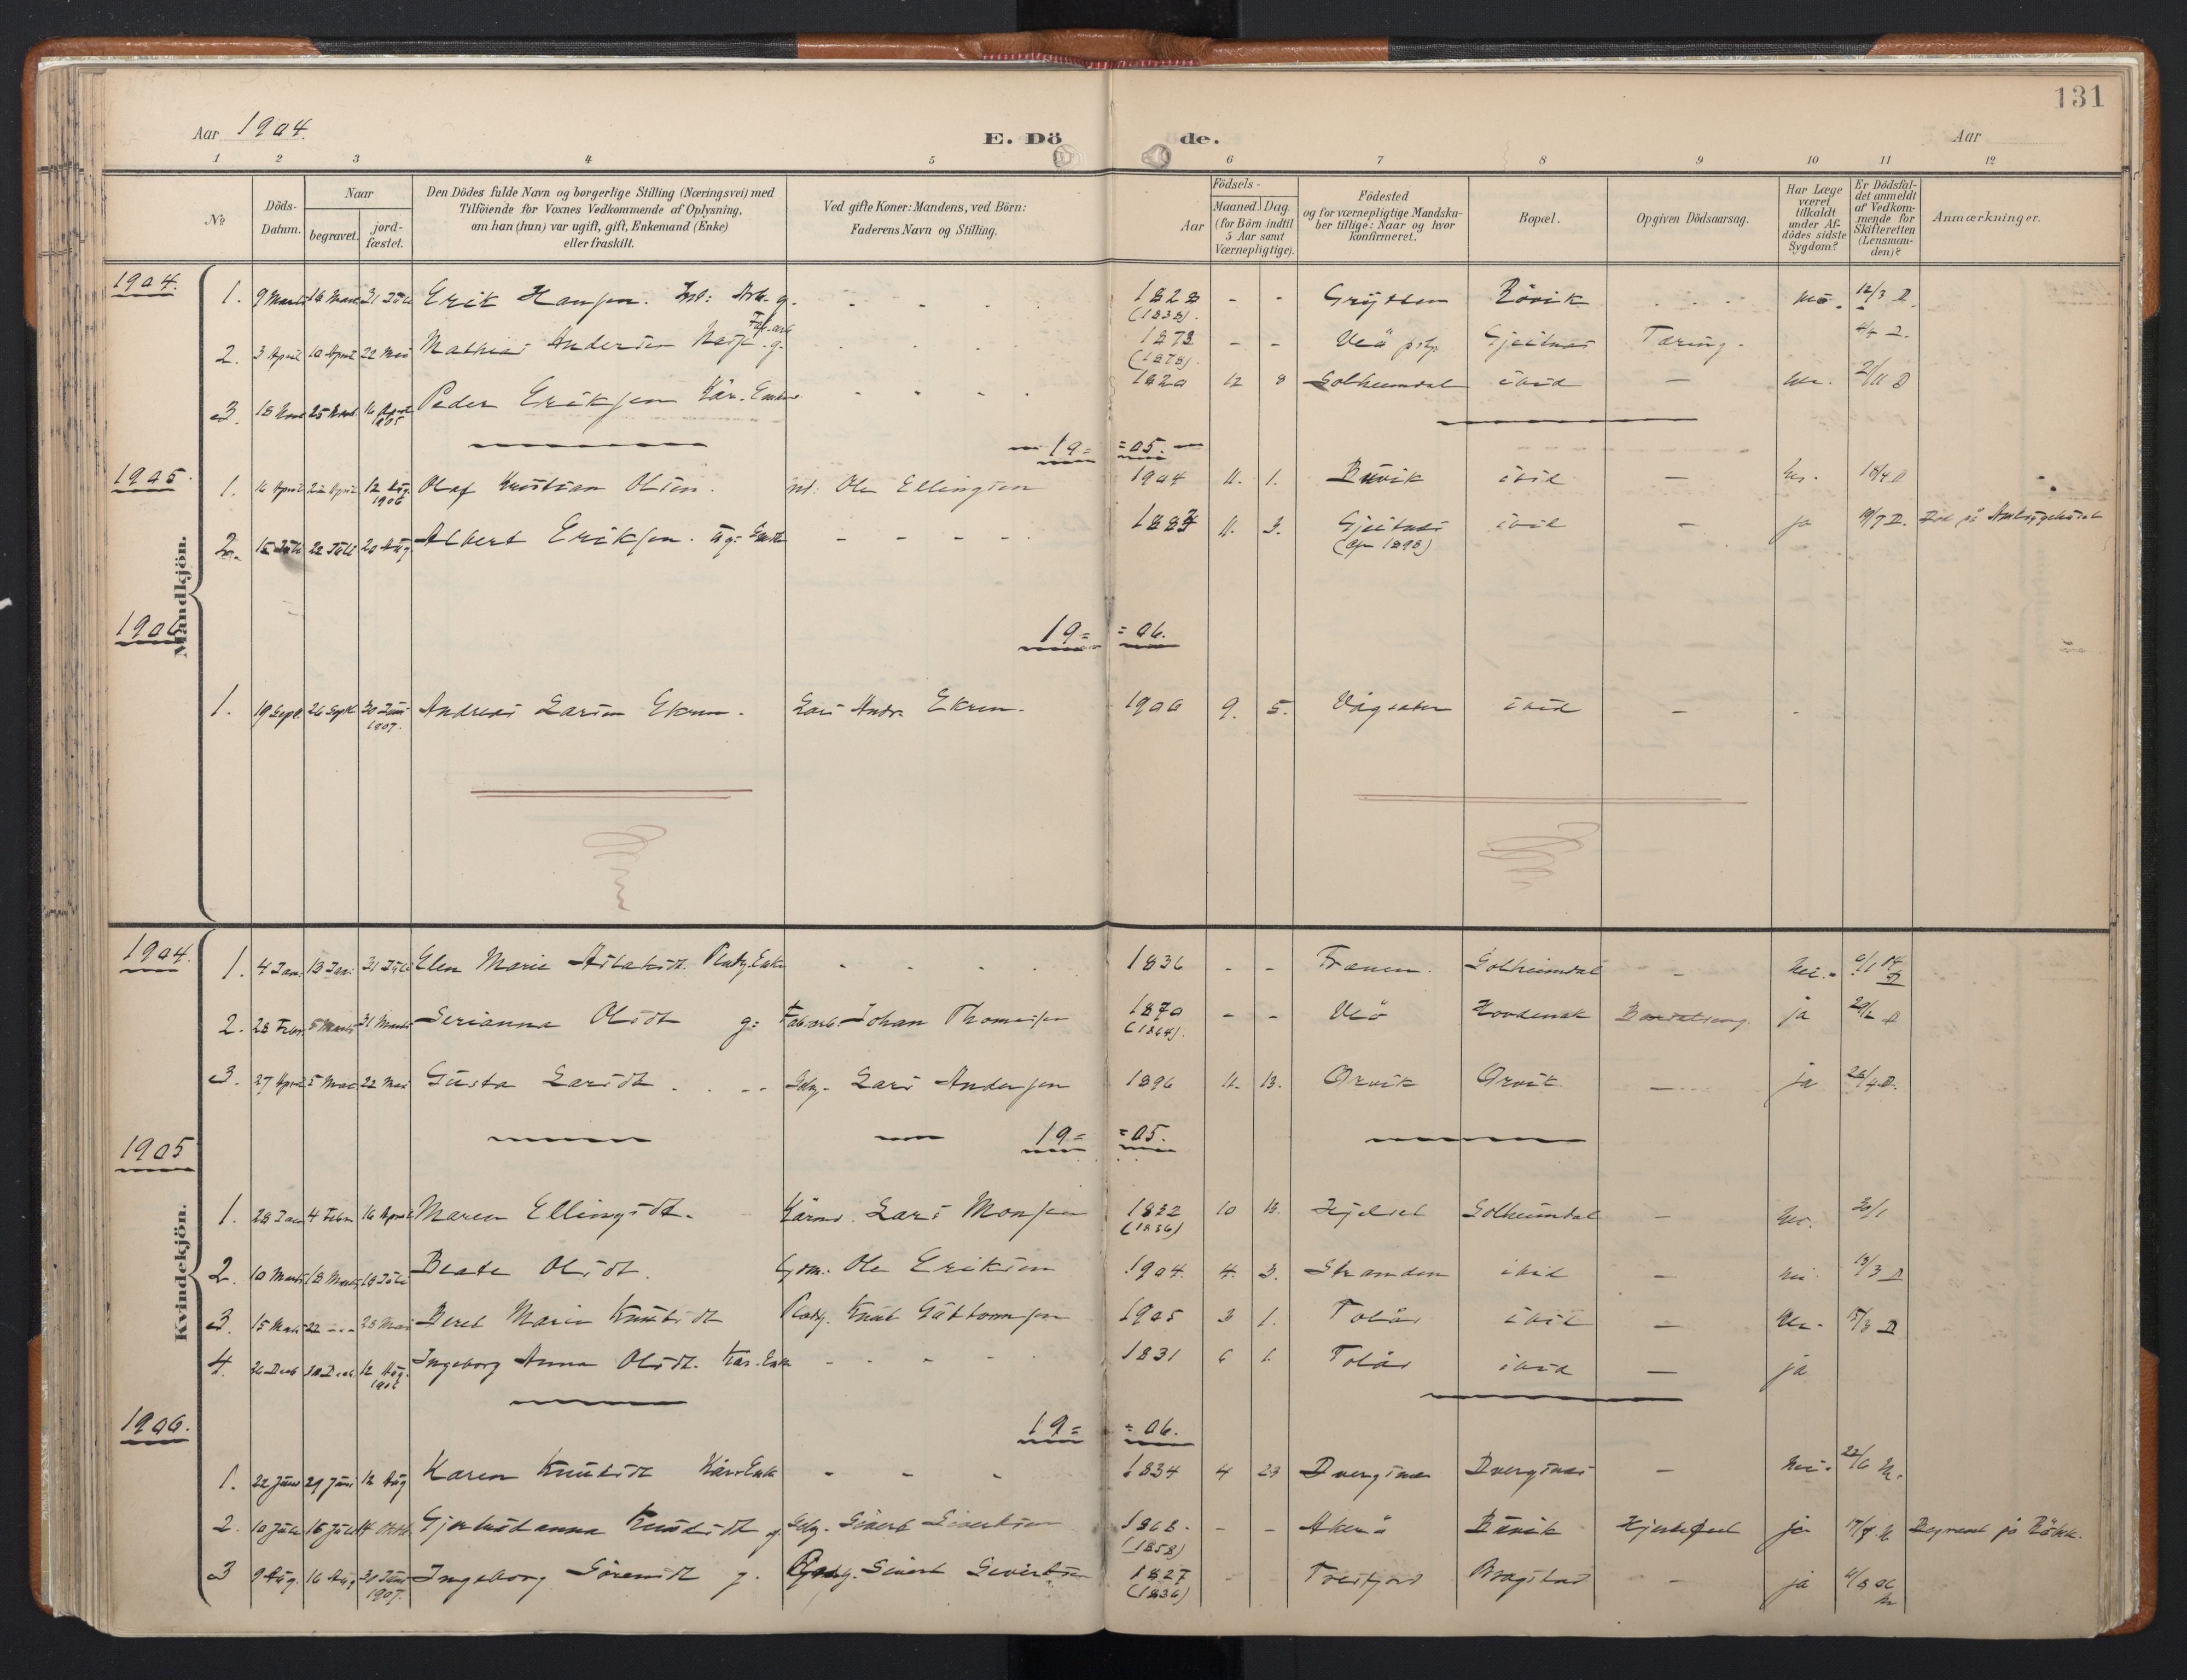 131
Aar 1904.
E. Dö de.
Aar
1 2 3 4 5 6 7 8 9 10 11 12
No
Döds-Datum.
Naar
begravet.
jordfæstet.
Den Dödes fulde Navn og borgerlige Stilling (Næringsvei) med
Tilföiende for Voxnes Vedkommende af Oplysning,
om han (hun) var ugift, gift, Enkemand (Enke)
eller fraskilt.
Ved gifte Koner: Mandens, ved Börn:
Faderens Navn og Stilling.
Födsels-
Aar
Maaned. Dag.
(for Börn indtil
5 Aar samt
Værnepligtige).
Födested
og for værnepligtige Mandska-
ber tillige: Naar og hvor
konfirmeret.
Bopæl.
Opgiven Dödsaarsag.
Har Læge
været
tilkaldt
under Af-
dödes sidste
Sygdom?
Er Dödsfal-
det anmeldt
af Vedkom-
mende for
Skifteretten
(Lensman-
den)?
Anmærkninger.
Mandkjön.
1904.
1. 9 Marts 31 Juli Erik Hansen. g. 1828 (1838). - - Grytten 12/3
2. 3 April 10 April 22 Mai Mathias Andersen g. 1873 (1878). - - Veö Gjeitnes Tæring. 4/4
3. 16 April 1905 Peder Eriksen Kår. 1820 12 8 Solheimdal ibid —
19= =05.
1905.
1. 16 April 22 April 12 Aug. 1906 Olaf Kristian Olsen. Ole Ellingsen 1904 11. 1. ibid — 18/4
2. 15 Juli 22 Juli 20 Aug Albert Eriksen. - - - - 11. 3. Gjeitnes ibid - ja Död på Amtssygehuset
19= =06.
1906
1. 19 Sept. 26 Sept. 30 Juni 1907. Andreas Larsen Ekren. Lars Andr. Ekren. 1906 9. 5. Vågsæter ibid - -
Kvindekjön.
1904.
1. 4 Jan. 13 Jan. 31 Juli Elen Marie 1836 - - Frænen. Solheimdal - Nei.
2. 28 Febr. 5 Marts 31 Marts Serianna Olsdt g: Fab.arb. Johan Thomassen 1870 (1864). - - Veö Hovdenak Barselseng. ja
3. 27 April 5 Mai 22 Mai Gusta Larsdt. Gdbr. Lars Andersen 1896 11. 13. Orvik Orvik — ja
19= =05.
1905
1. 28 Jan 4 Febr. 16 April Maren Ellingsdt. Kårm. Lars Monsen 1832 (1836) 10 13. Hjelset Solheimdal - 30/1
2. 10 Marts 18 Marts Beate Olsdt. Gdm. Ole Eriksen 1904. 4. 3. Stranden ibid — 13/3
3. 15 Marts 22 --- 28 Mai Beret Marie Knutsdt Knut Guttormsen 1905 3 1. Tolås ibid —
4. 12 Aug. 1906 Ingeborg Anna Olsdt. Kår. Enke 1831 6 1. Tolås ibid — ja
1906.
19= =06.
1. 22 Juni 29 Juni 12 Aug Karen Knutsdt Kår. Enke - - - 1834 4 23 Dvergsnes Dvergsnes — Nei. 22/6
2. 10 Juli 16 Juli Knudsdt g. Gdbr. Sivert Sivertsen 1868. (1858) - - Akerö Hjertefeil ja Begravet på
3 9 Aug. 16 Aug 30 Juni 1907. Ingeborg Sörensdt g. Sivert Sivertsen 1827 (1836) - - Tresfjord - ja